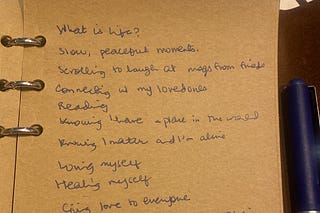 What is life?
Slow, peaceful moments.
Scrolling to laugh at msgs from friends
Connecting w my loved ones
Reading
Knowing I have a place in the world
Knowing I matter and I'm alive
Loving myself
Healing myself
Giving love to everyone